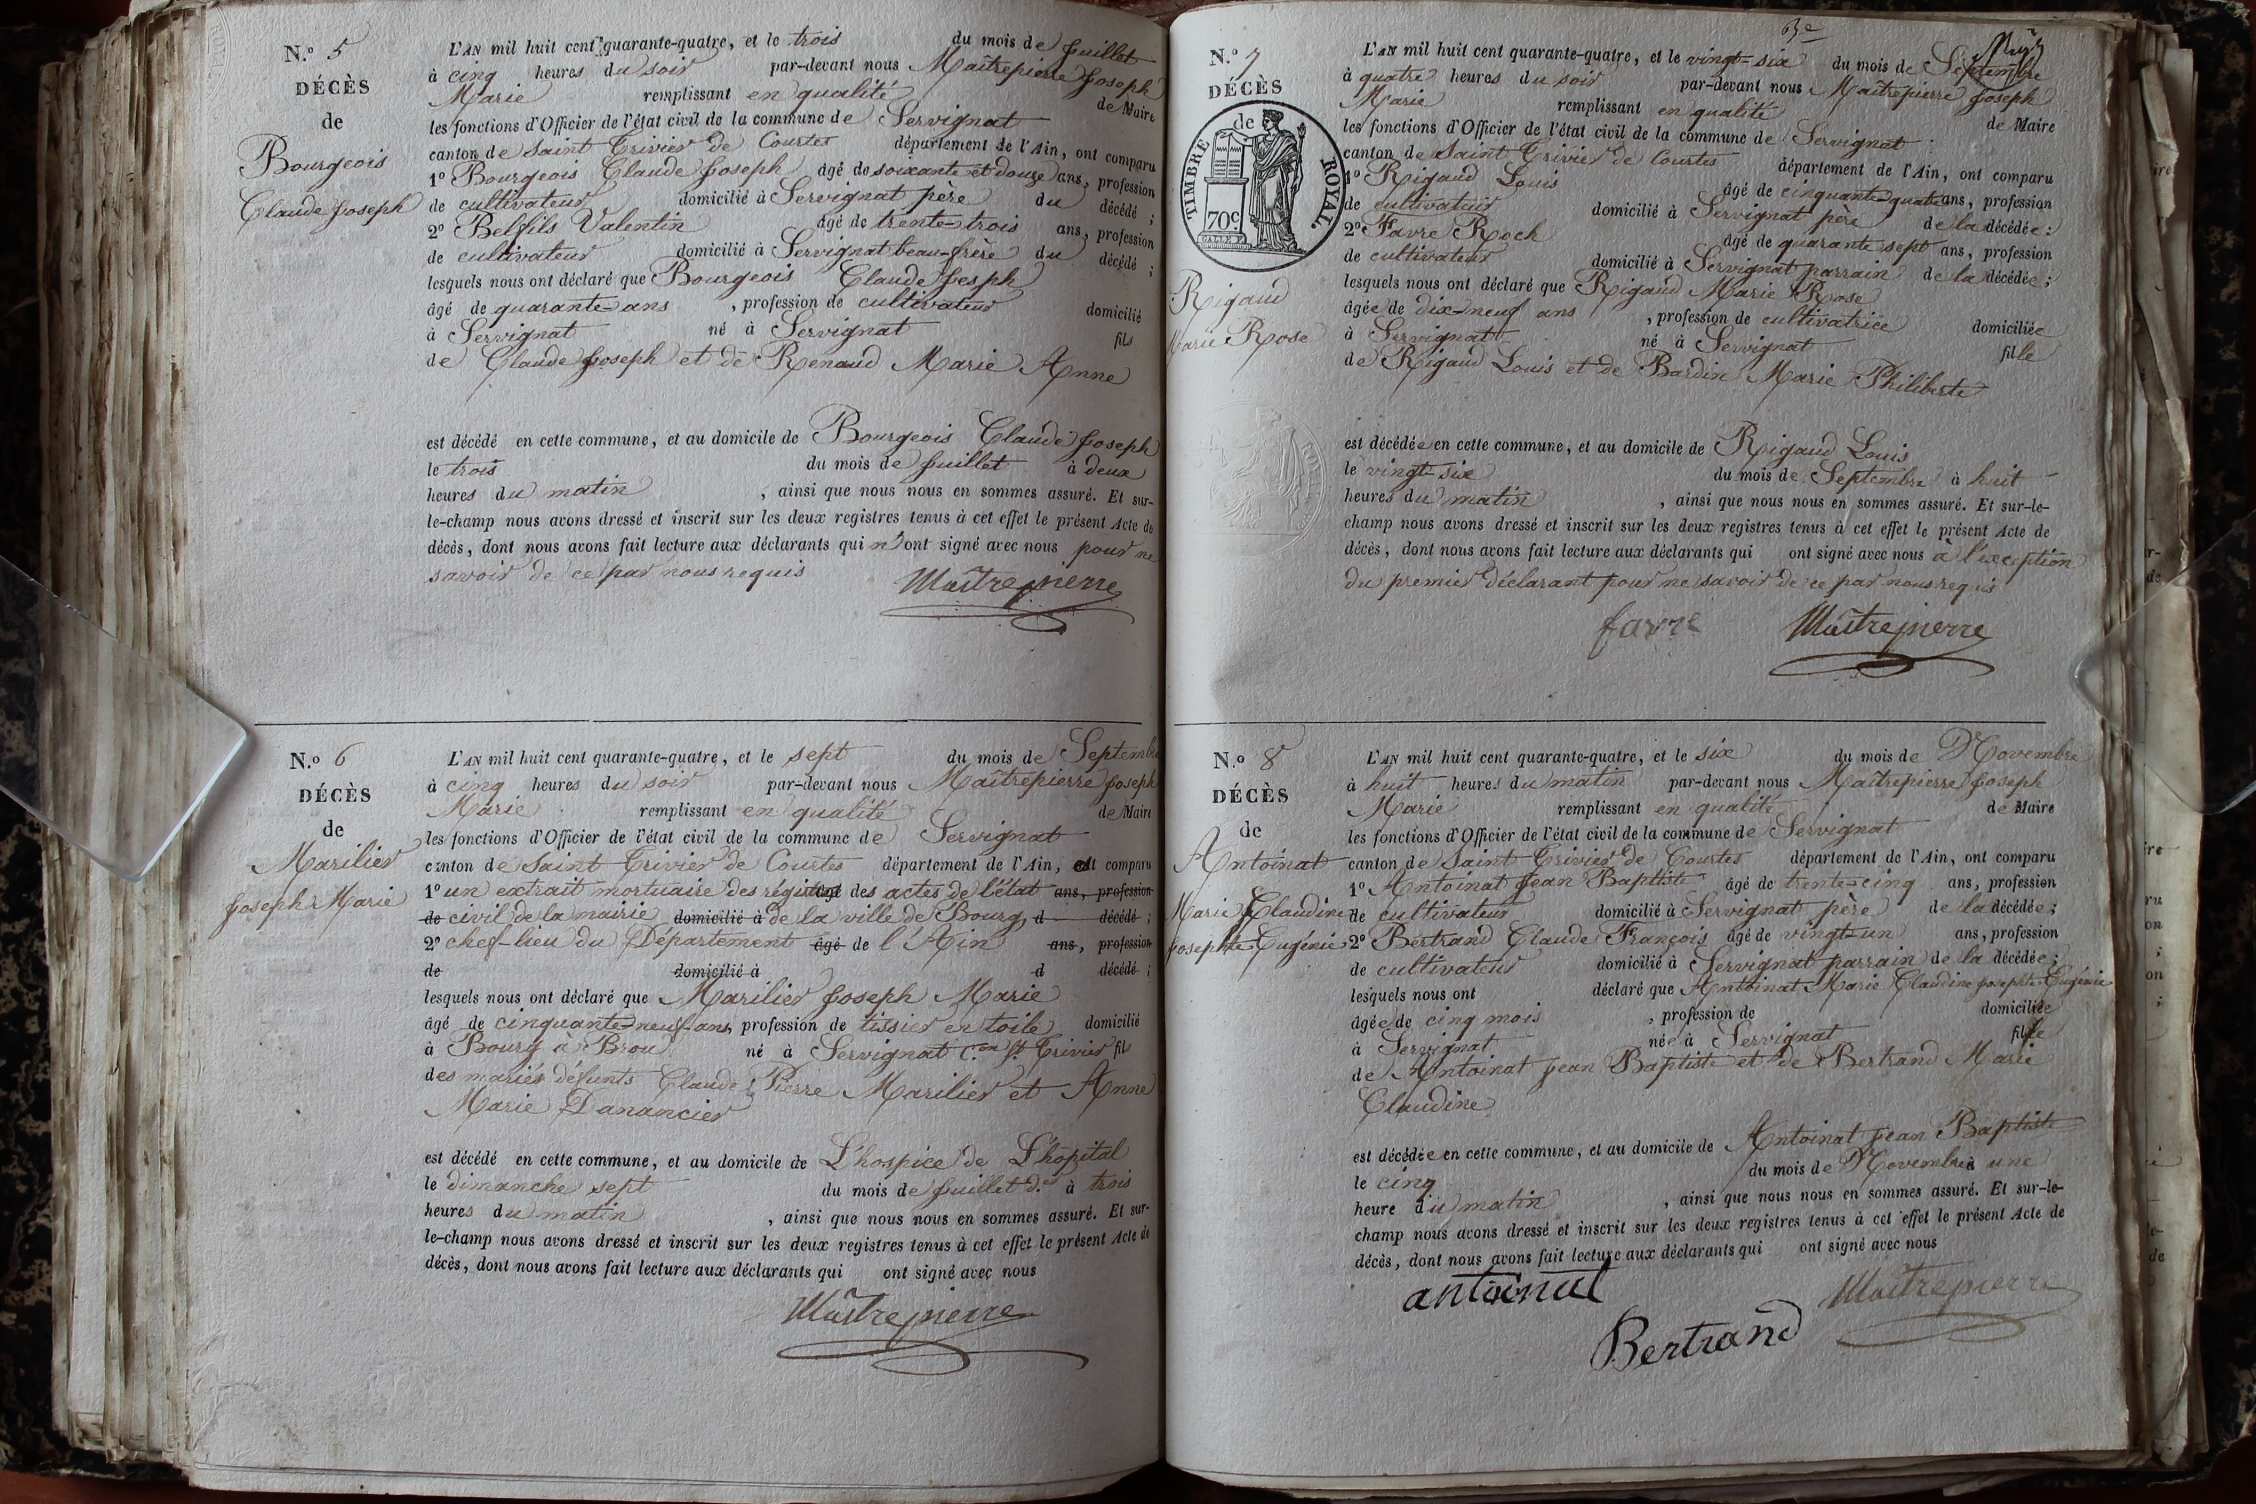 N.º 5
DÉCÈS
de
Bourgeois
Claude Joseph
L'AN mil huit cent quarante-quatre, et le trois du mois de Juillet
à cinq heures du soir par-devant nous Maîtrepierre Joseph
Marie remplissant en qualité de Maire
les fonctions d'Officier de l'état civil de la commune de Servignat
canton de Saint Trivier de Courtes département de l'Ain, ont comparu
1º Bourgeois Claude Joseph âgé de soixante et douze ans, profession
de cultivateur domicilié à Servignat père du décédé ;
2º Belfils Valentin âgé de trente-trois ans, profession
de cultivateur domicilié à Servignat beau-frère du décédé ;
lesquels nous ont déclaré que Bourgeois Claude Jesph
âgé de quarante-ans , profession de cultivateur domicilié
à Servignat né à Servignat fils
de Claude Joseph et de Renaud Marie Anne
est décédé en cette commune, et au domicile de Bourgeois Claude Joseph
le trois du mois de Juillet à deux
heures du matin , ainsi que nous nous en sommes assuré. Et sur-
le-champ nous avons dressé et inscrit sur les deux registres tenus à cet effet le présent Acte de
décès, dont nous avons fait lecture aux déclarants qui n'ont signé avec nous pour ne
savoir de ce par nous requis
Maîtrepierre
N.º 6
DÉCÈS
de
Marilier
Joseph Marie
L'AN mil huit cent quarante-quatre, et le sept du mois de Septembre
à cinq heures du soir par-devant nous Maîtrepierre Joseph
Marie remplissant en qualité de Maire
les fonctions d'Officier de l'état civil de la commune de Servignat
canton de Saint Trivier de Courtes département de l'Ain, est comparu
1º un extrait mortuaire des registres des actes de l'état ans, profession
de civil de la mairie domicilié à de la ville de Bourg, d décédé ;
2º chef-lieu du Département âgé de l'Ain ans, profession
de domicilié à d décédé ;
lesquels nous ont déclaré que Marilier Joseph Marie
âgé de cinquante-neuf-ans, profession de tissier en toile domicilié
à Bourg à Brou né à Servignat C.on St. Trivier fils
des mariés défunts Claude Pierre Marilier et Anne
Marie Danancier
est décédé en cette commune, et au domicile de L'hospice de L'hopital
le dimanche sept du mois de Juillet d.er à trois
heures du matin , ainsi que nous nous en sommes assuré. Et sur-
le-champ nous avons dressé et inscrit sur les deux registres tenus à cet effet le présent Acte de
décès, dont nous avons fait lecture aux déclarants qui ont signé avec nous
Maîtrepierre
N.º 7
DÉCÈS
de
TIMBRE ROYAL.
70c.
Rigaud
Marie Rose
L'AN mil huit cent quarante-quatre, et le vingt-six du mois de Septembre
à quatre heures du soir par-devant nous Maîtrepierre Joseph
Marie remplissant en qualité de Maire
les fonctions d'Officier de l'état civil de la commune de Servignat
canton de Saint Trivier de Courtes département de l'Ain, ont comparu
1º Rigaud Louis âgé de cinquante-quatre ans, profession
de cultivateur domicilié à Servignat père de la décédée ;
2º Favre Roch âgé de quarante sept ans, profession
de cultivateur domicilié à Servignat parrain de la décédée ;
lesquels nous ont déclaré que Rigaud Marie Rose
âgée de dix-neuf ans , profession de cultivatrice domiciliée
à Servignat né à Servignat fille
de Rigaud Louis et de Bardin Marie Philiberte
est décédée en cette commune, et au domicile de Rigaud Louis
le vingt-six du mois de Septembre à huit
heures du matin , ainsi que nous nous en sommes assuré. Et sur-le-
champ nous avons dressé et inscrit sur les deux registres tenus à cet effet le présent Acte de
décès, dont nous avons fait lecture aux déclarants qui ont signé avec nous à l'exception
du premier déclarant pour ne savoir de ce par nous requis
favre Maîtrepierre
N.º 8
DÉCÈS
de
Antoinat
Marie Claudine
Josephte Eugénie
L'AN mil huit cent quarante-quatre, et le six du mois de Novembre
à huit heures du matin par-devant nous Maîtrepierre Joseph
Marie remplissant en qualité de Maire
les fonctions d'Officier de l'état civil de la commune de Servignat
canton de Saint Trivier de Courtes département de l'Ain, ont comparu
1º Antoinat Jean Baptiste âgé de trente-cinq ans, profession
de cultivateur domicilié à Servignat père de la décédée ;
2º Bertrand Claude François âgé de vingt-un ans, profession
de cultivateur domicilié à Servignat parrain de la décédée ;
lesquels nous ont déclaré que Antoinat Marie Claudine Josephte Eugénie
âgée de cinq mois , profession de domiciliée
à Servignat née à Servignat fille
de Antoinat Jean Baptiste et de Bertrand Marie
Claudine
est décédée en cette commune, et au domicile de Antoinat Jean Baptiste
le cinq du mois de Novembre à une
heure du matin , ainsi que nous nous en sommes assuré. Et sur-le-
champ nous avons dressé et inscrit sur les deux registres tenus à cet effet le présent Acte de
décès, dont nous avons fait lecture aux déclarants qui ont signé avec nous
antoinat Maîtrepierre
Bertrand